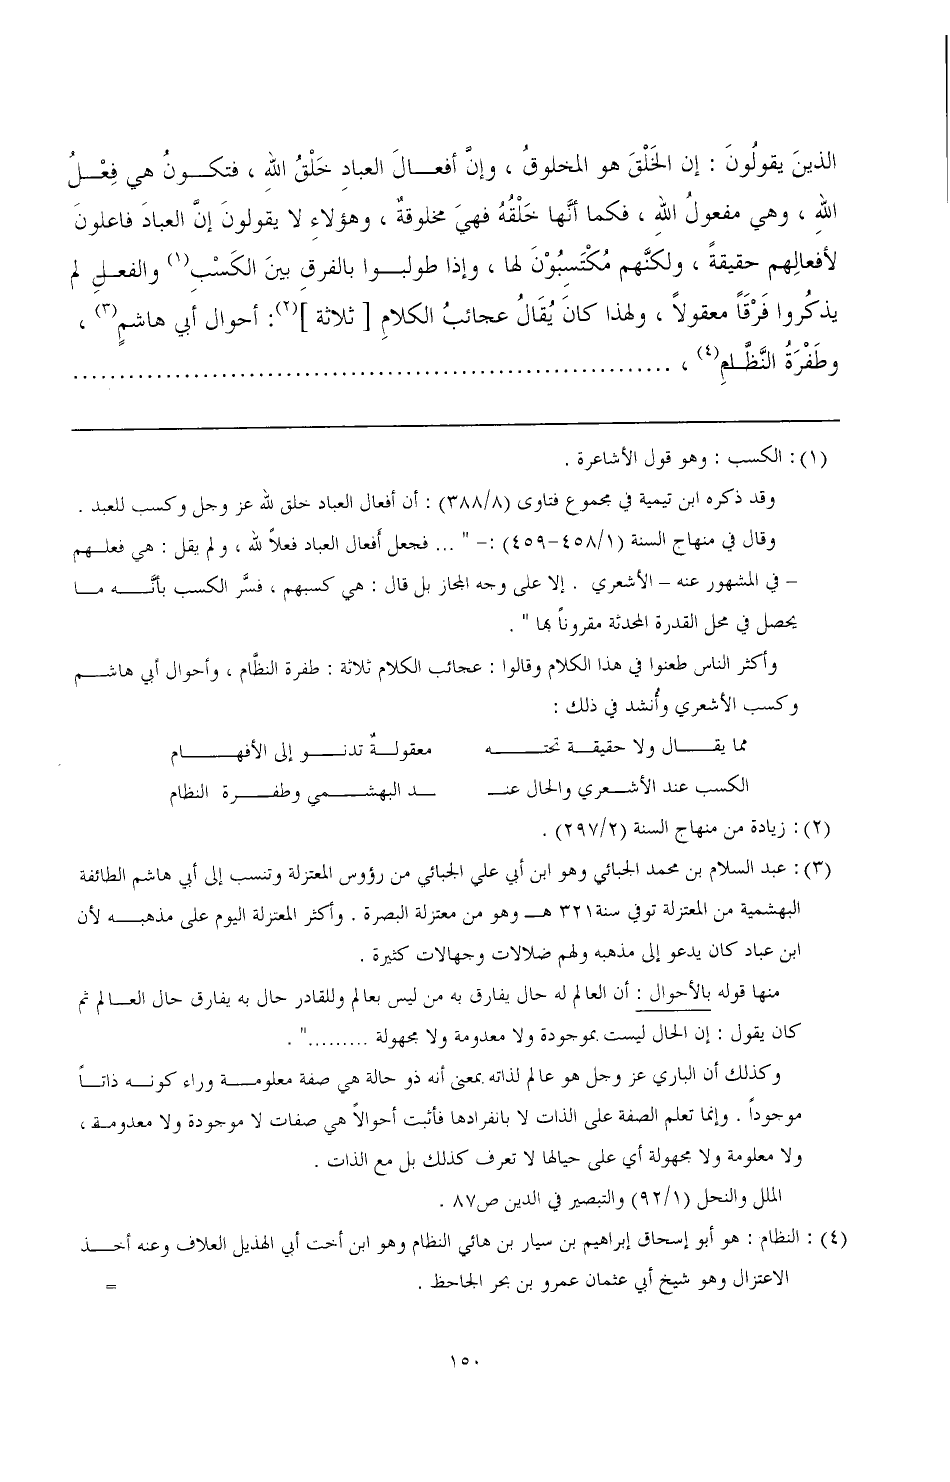 الذينَ يقولُونَ : إن الخَلْقَ هو المخلوقُ ، وإنَّ أفعــالَ العبادِ خَلْقُ اللهِ ، فتكـــونُ هي فِعْــلُ
اللهِ ، وهي مفعولُ اللهِ ، فكما أنَّها خَلْقُهُ فهيَ مخلوقةٌ ، وهؤلاءِ لا يقولونَ إنَّ العبادَ فاعلونَ
لأفعالِهم حقيقةً ، ولكنَّهم مُكْتَسِبُوْنَ لها ، وإذا طولبــوا بالفرقِ بينَ الكَسْبِ(١) والفعلِ لم
يذكُروا فَرْقَاً معقولاً ، ولهذا كانَ يُقَالُ عجائبُ الكلامِ [ ثلاثة ](٢): أحوال أبي هاشمٍ(٣) ،
وطَفْرَةُ النَّظَّــامِ(٤) ، ................................................................
(١): الكسب : وهو قول الأشاعرة .
وقد ذكره ابن تيمية في مجموع فتاوى (٣٨٨/٨) : أن أفعال العباد خلق لله عز وجل وكسب للعبد .
وقال في منهاج السنة (٤٥٨/١-٤٥٩) :- " ... فجعل أفعال العباد فعلاً لله ، ولم يقل : هي فعلــهم
– في المشهور عنه – الأشعري . إلا على وجه المجاز بل قال : هي كسبهم ، فسَّر الكسب بأنَّــه مــا
يحصل في محل القدرة المحدثة مقروناً بها " .
وأكثر الناس طعنوا في هذا الكلام وقالوا : عجائب الكلام ثلاثة : طفرة النظَّام ، وأحوال أبي هاشــم
وكسب الأشعري وأُنشد في ذلك :
مما يقـــال ولا حقيقــة تحتــــه معقولــةٌ تدنــــو إلى الأفهــــام
الكسب عند الأشــعري والحال عنــ ـــد البهشــــمي وطفـــرة النظام
(٢): زيادة من منهاج السنة (٢٩٧/٢) .
(٣): عبد السلام بن محمد الجبائي وهو ابن أبي علي الجبائي من رؤوس المعتزلة وتنسب إلى أبي هاشم الطائفة
البهشمية من المعتزلة توفي سنة ٣٢١ هــ وهو من معتزلة البصرة . وأكثر المعتزلة اليوم على مذهبــه لأن
ابن عباد كان يدعو إلى مذهبه ولهم ضلالات وجهالات كثيرة .
منها قوله بالأحوال : أن العالم له حال يفارق به من ليس بعالم وللقادر حال به يفارق حال العــالم ثم
كان يقول : إن الحال ليست بموجودة ولا معدومة ولا مجهولة ........." .
وكذلك أن الباري عز وجل هو عالم لذاته بمعنى أنه ذو حالة هي صفة معلومــة وراء كونــه ذاتــاً
موجوداً . وإنما تعلم الصفة على الذات لا بانفرادها فأثبت أحوالاً هي صفات لا موجودة ولا معدومة ،
ولا معلومة ولا مجهولة أي على حيالها لا تعرف كذلك بل مع الذات .
الملل والنحل (٩٢/١) والتبصير في الدين ص٨٧ .
(٤) : النظام : هو أبو إسحاق إبراهيم بن سيار بن هانئ النظام وهو ابن أخت أبي الهذيل العلاف وعنه أخــذ
الاعتزال وهو شيخ أبي عثمان عمرو بن بحر الجاحظ . =
١٥٠